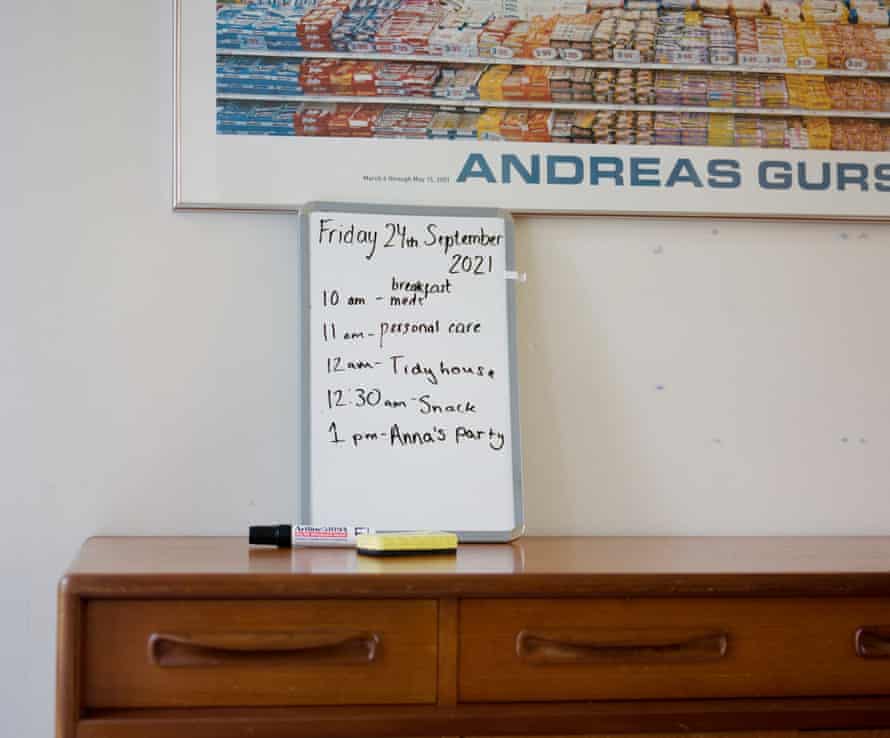 March 4 through May 15, 2001
ANDREAS GURS
Friday 24th September
2021
breakfast
10 am - meds
11 am - personal care
12 am - Tidy house
12:30 am - Snack
1 pm - Anna's party
Artline